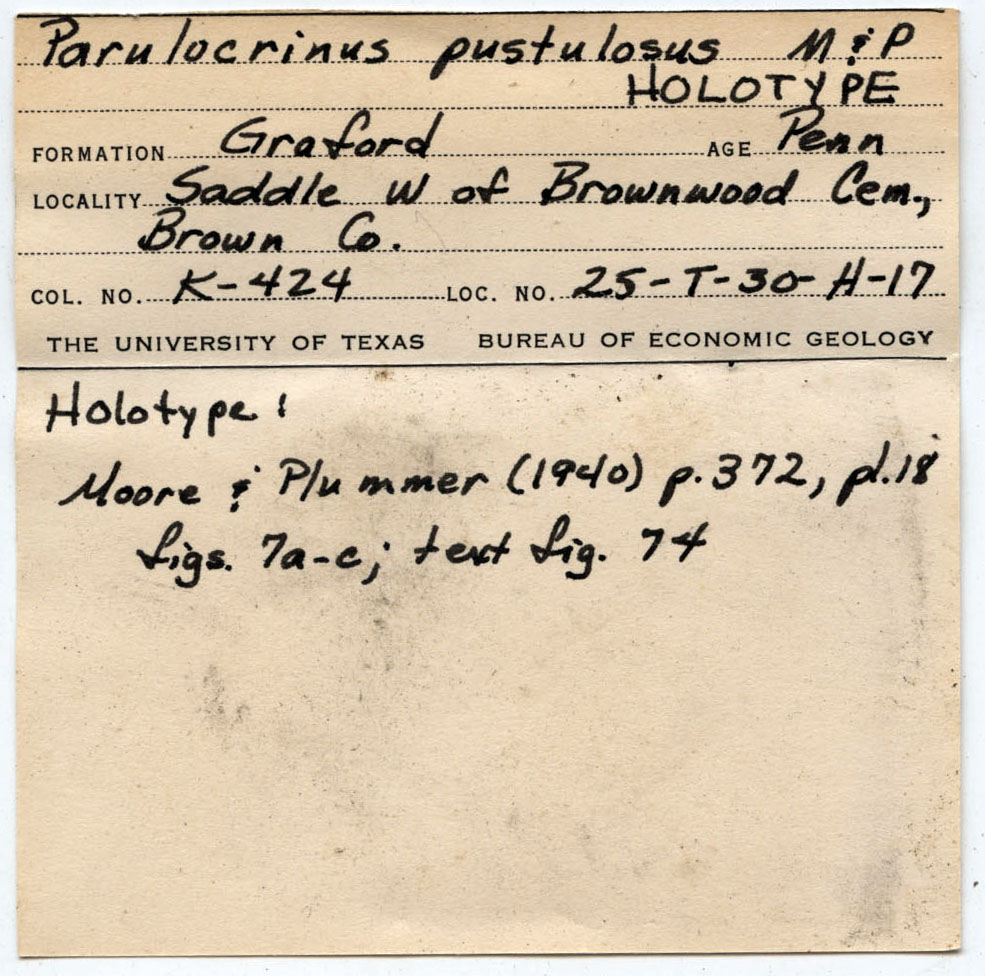 Parulocrinus pustulosus M & P
HOLOTYPE
FORMATION Graford AGE Penn
LOCALITY Saddle W of Brownwood Cem.,
Brown Co.
COL. NO. K-424 LOC. NO. 25-T-30-H-17
THE UNIVERSITY OF TEXAS BUREAU OF ECONOMIC GEOLOGY
Holotype:
Moore & Plummer (1940) p. 372, pl. 18
figs. 7a-c; text fig. 74